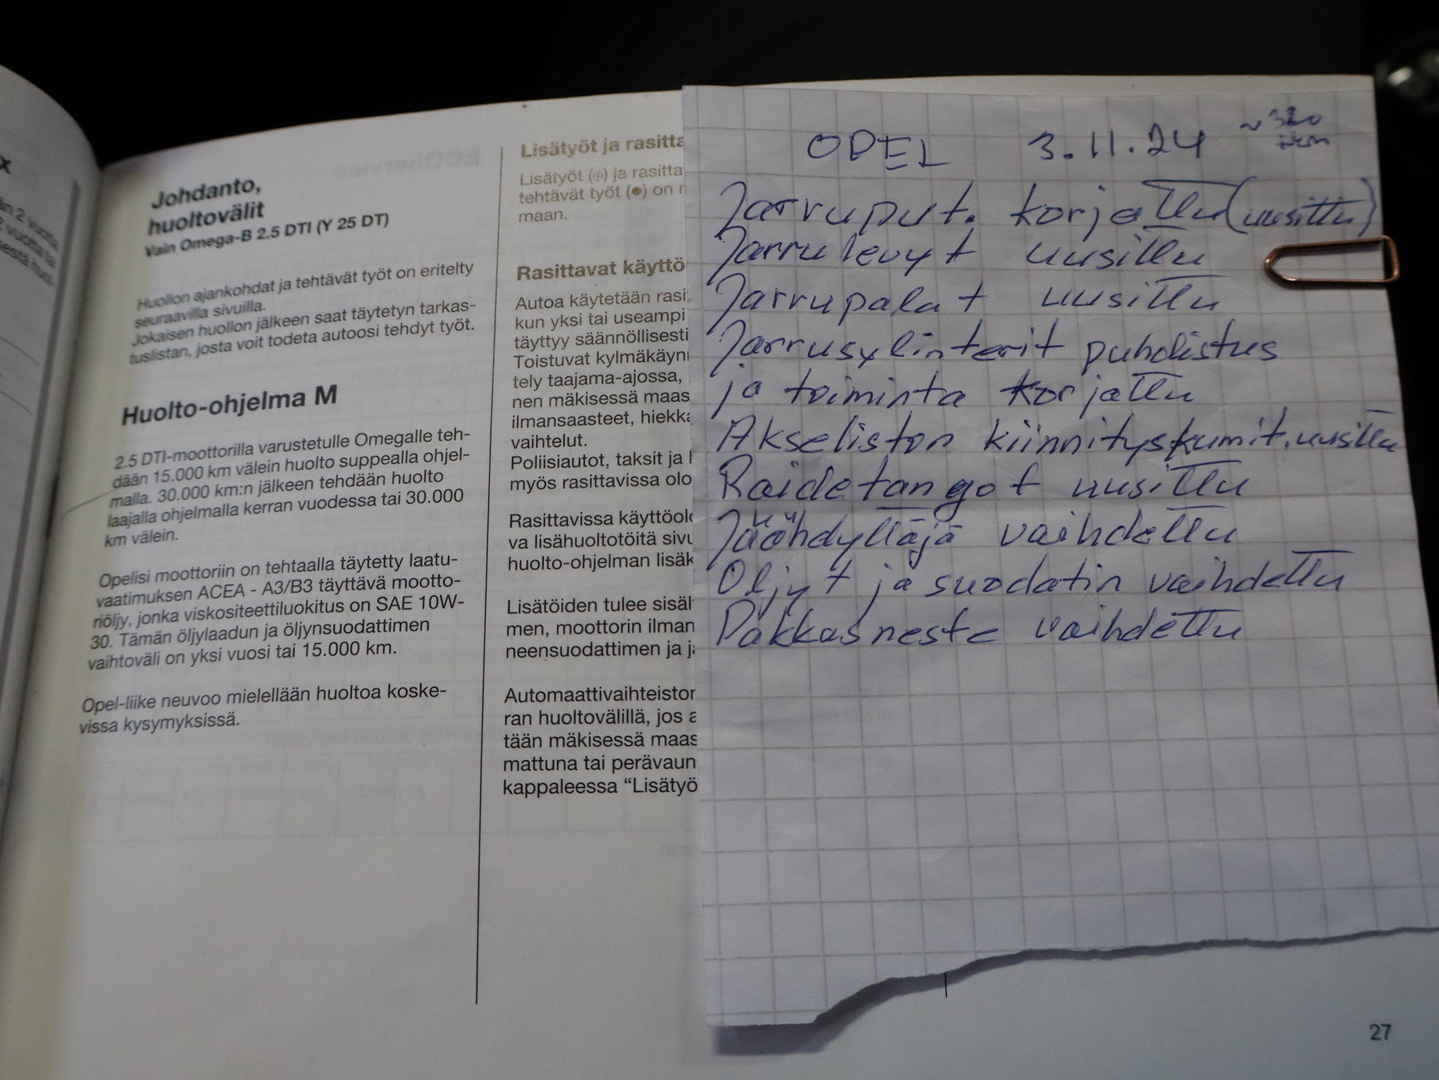 Johdanto,
huoltovälit
Vain Omega-B 2.5 DTI (Y 25 DT)
Huollon ajankohdat ja tehtävät työt on eritelty
seuraavilla sivuilla.
Jokaisen huollon jälkeen saat täytetyn tarkas-
tuslistan, josta voit todeta autoosi tehdyt työt.
Huolto-ohjelma M
2.5 DTI-moottorilla varustetulle Omegalle teh-
dään 15.000 km välein huolto suppealla ohjel-
malla. 30.000 km:n jälkeen tehdään huolto
laajalla ohjelmalla kerran vuodessa tai 30.000
km välein.
Opelisi moottoriin on tehtaalla täytetty laatu-
vaatimuksen ACEA - A3/B3 täyttävä mootto-
riöljy, jonka viskositeettiluokitus on SAE 10W-
30. Tämän öljylaadun ja öljynsuodattimen
vaihtoväli on yksi vuosi tai 15.000 km.
Opel-liike neuvoo mielellään huoltoa koske-
vissa kysymyksissä.
Lisätyöt ja rasitta
Lisätyöt (○) ja rasitta
tehtävät työt (●) on
maan.
Rasittavat käyttö
Autoa käytetään rasi
kun yksi tai useampi
täyttyy säännöllisesti
Toistuvat kylmäkäyn
tely taajama-ajossa,
nen mäkisessä maas
ilmansaasteet, hiekka
vaihtelut.
Poliisiautot, taksit ja
myös rasittavissa olo
Rasittavissa käyttöolo
va lisähuoltotöitä sivu
huolto-ohjelman lisäk
Lisätöiden tulee sisäl
men, moottorin ilman
neensuodattimen ja j
Automaattivaihteiston
ran huoltovälillä, jos a
tään mäkisessä maas
mattuna tai perävaun
kappaleessa “Lisätyö
OPEL 3.11.24 ~320
tkm
Jarruput. korjattu (uusittu)
Jarrulevyt uusittu
Jarrupalat uusittu
Jarrusylinterit puhdistus
ja toiminta korjattu
Akseliston kiinnityskumit. uusittu
Raidetangot uusittu
Jäähdyttäjä vaihdettu
Öljyt ja suodatin vaihdettu
Pakkasneste vaihdettu
27